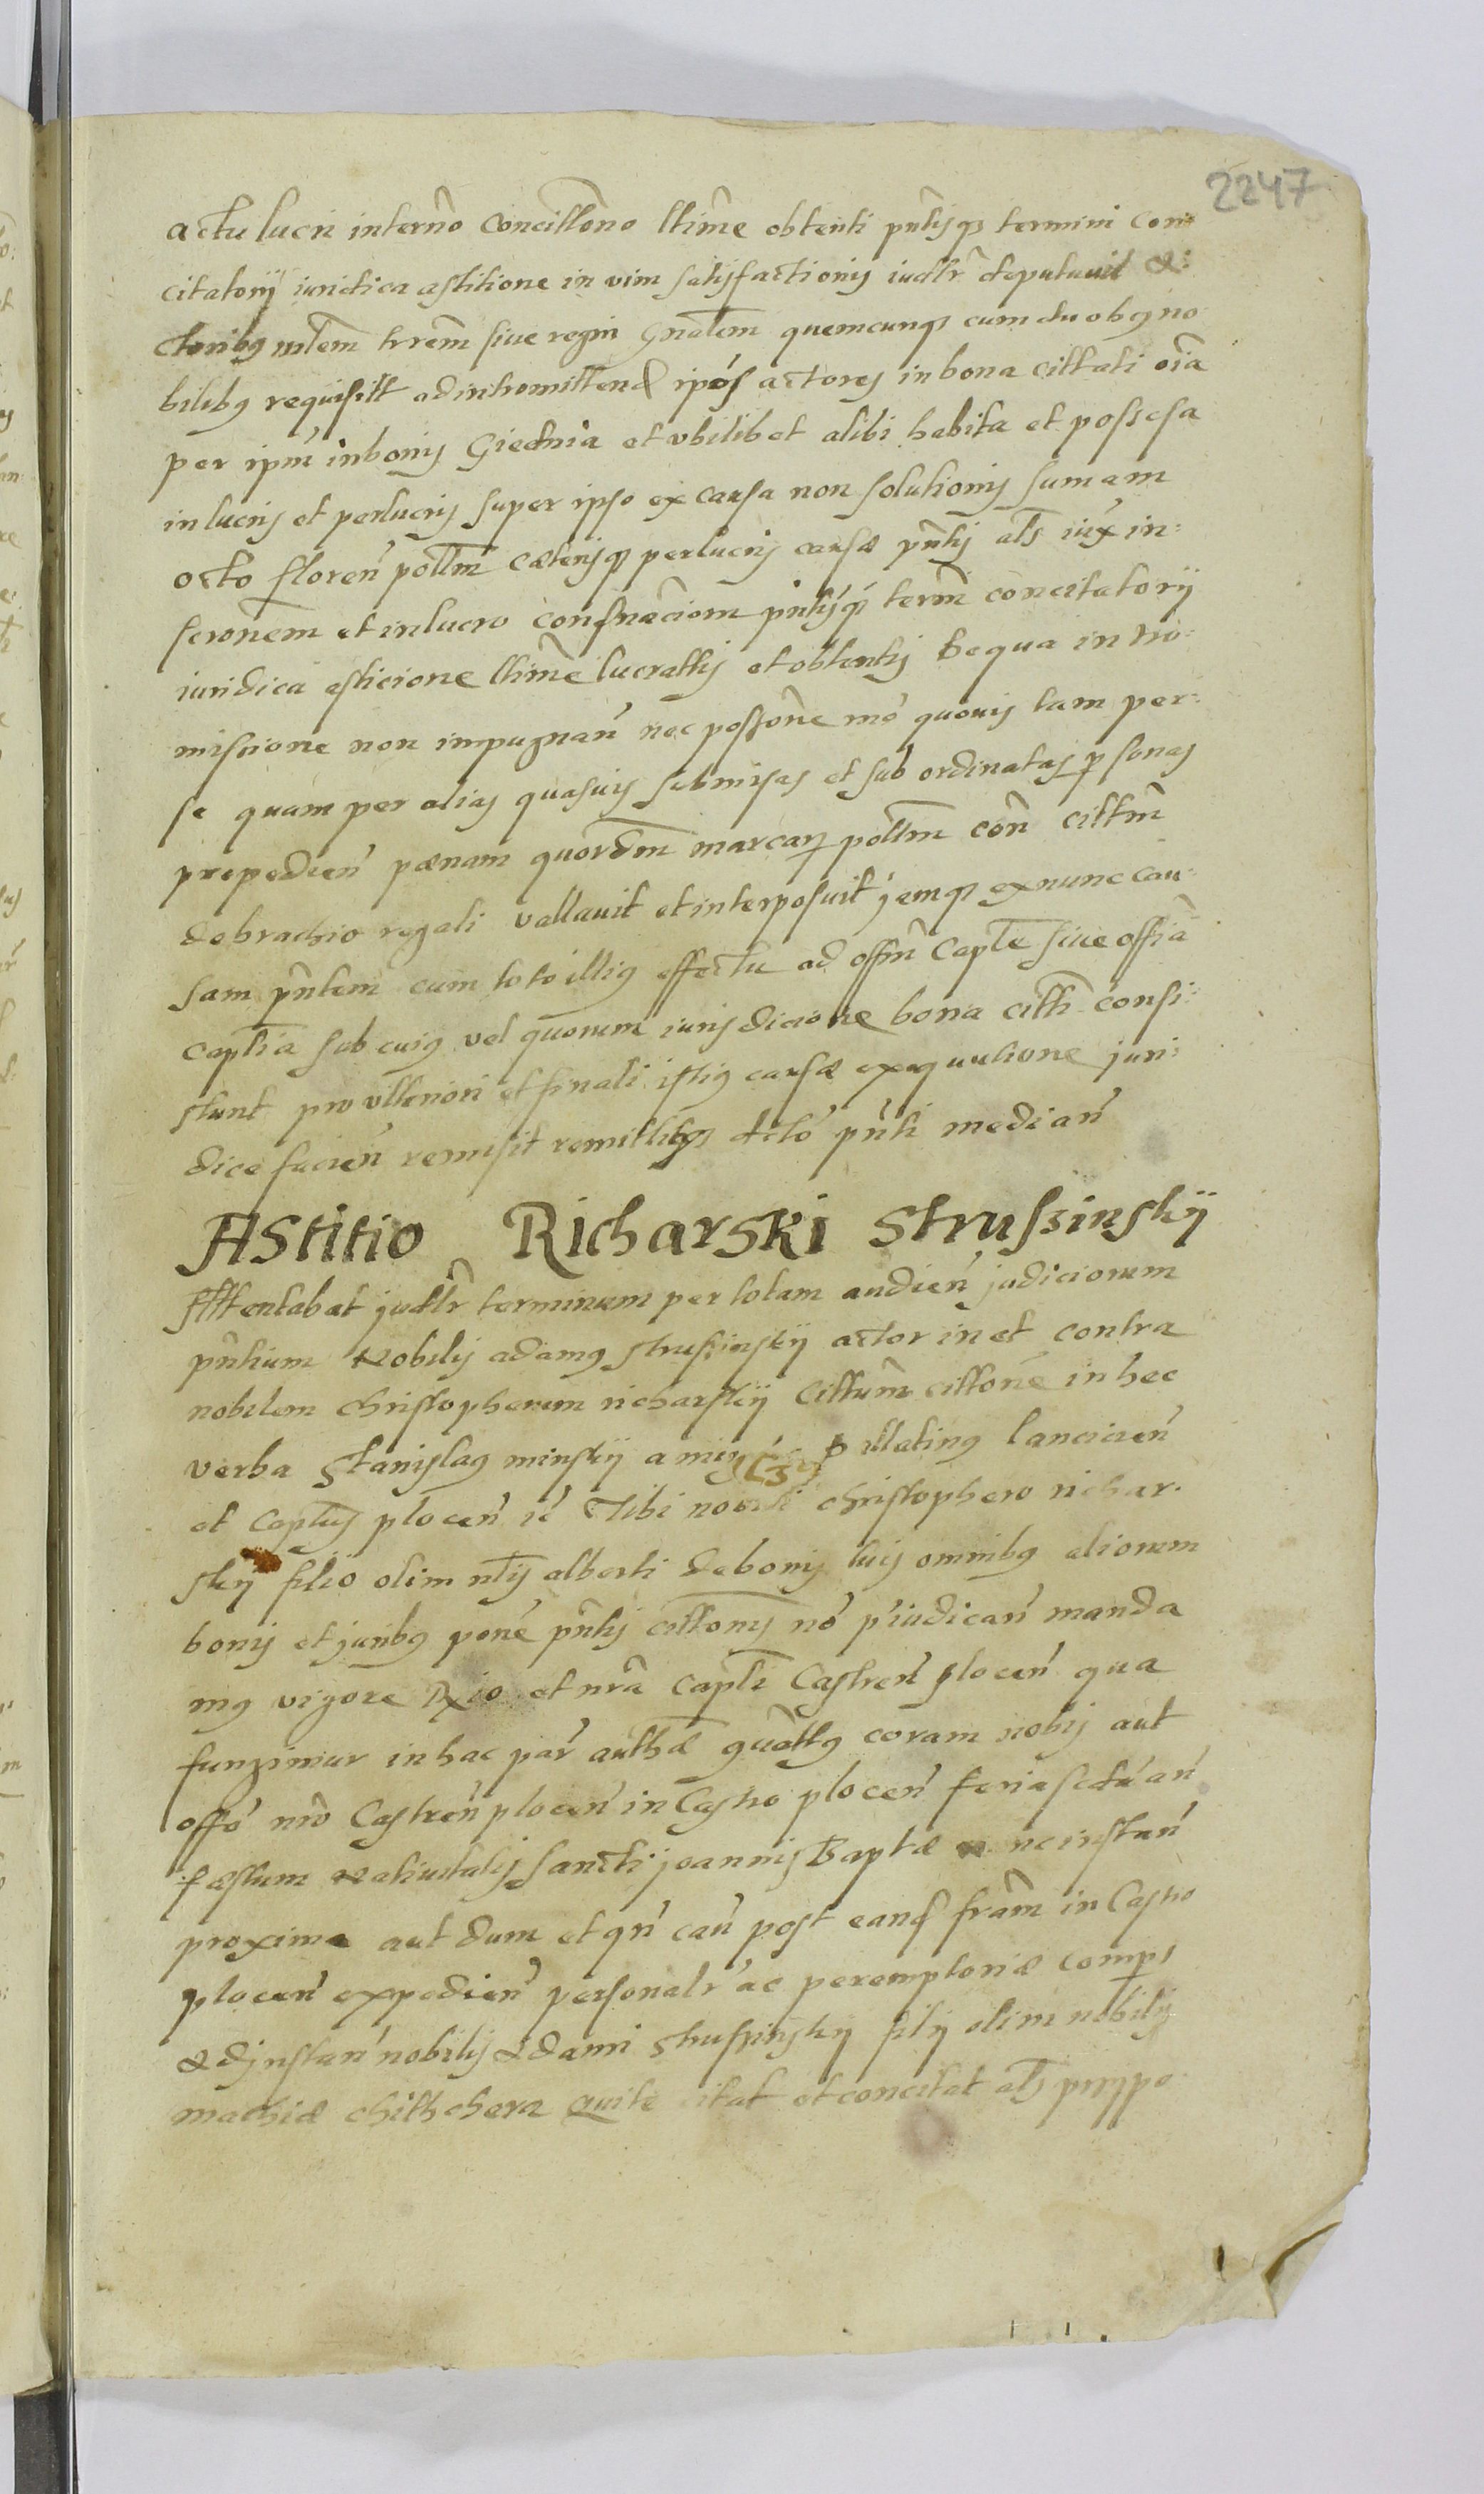 2247
actu lucri interno concittono ltime obtenti pntisqz termini con
citatorii iuridica astitione in vim satisfactionis iudtr deputavit &:
ctoribus mtem trrem sive regni Gnalem quemcunqz cum duobus no
bilibus requisitt ad intromittend ipos actores in bona cittati oia
per ipm in bonis Giednia et ubilibet alibi habita et possesa
in lucris et perlucris super ipso ex causa non solutionis sumam
octo floren pollm caeterisqz perlucris causae pntis als iux in:
scronem et in lucro consnaciom pntisqz term concitatorii
iuridica asticione ltime lucrattis et obtentis Be qua intro:
miscione non impugnan nec possone mo quovis tam per:
se quam per alias quasvis submisas et sub ordinatas psonas
prepedien paenam quordm marcarum pollm con cittm
de brachio regali vallavit et interposuit jemqz ex nunc cau:
sam pntem cum toto illius effectu ad offm Capte sive offia
captia sub cuius vel quorum iurisdicione bona citti consi:
stunt pro ulteriori et finali istius causae exequutione juri:
dice facien remisit remittitqz acto pnti median
Astitio Richarski Strussinskij
Attentabat judtr terminum per totam audien judiciorum
pntium Nobilis adamus strussinskij actor in et contra
nobilem christopherum richarskij cittum cittone in hec
verba Stanislaus minskij a mins pallatinus lancicien
et captus plocen ic Tibi nobili christophero richar.
skij filio olim nlis alberti de bonis tuis omnibus aliorum
bonis et juribus pone pntis cittonis no piudican manda
mus vigore Rgio et nra capti Castren plocen qua
fungimur in hac par authae quattus coram nobis aut
offo nro Castren plocen in Castro plocen feria scda an
faestum Nativitatis sancti joannis Baptae nc instan
proxime aut dum et qn cau post eand fram in Castro
plocen expedien personalr ac peremptoriae compas
Adjnstan nobilis Adami Strussinskij filij olim nobilis
mathiae chithchera qui te citat et concitat als prppo